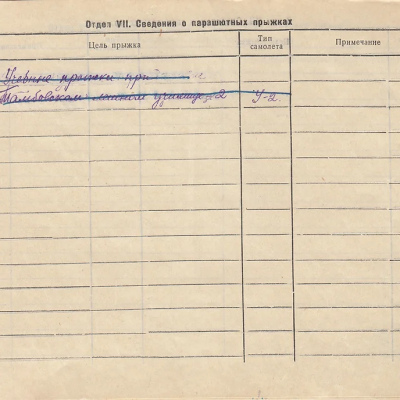 Отдел VII. Сведения о парашютных прыжках
Цель прыжка
Тип самолета
Примечание
прыжки при
Тамбовском летном училище - 2 У-2